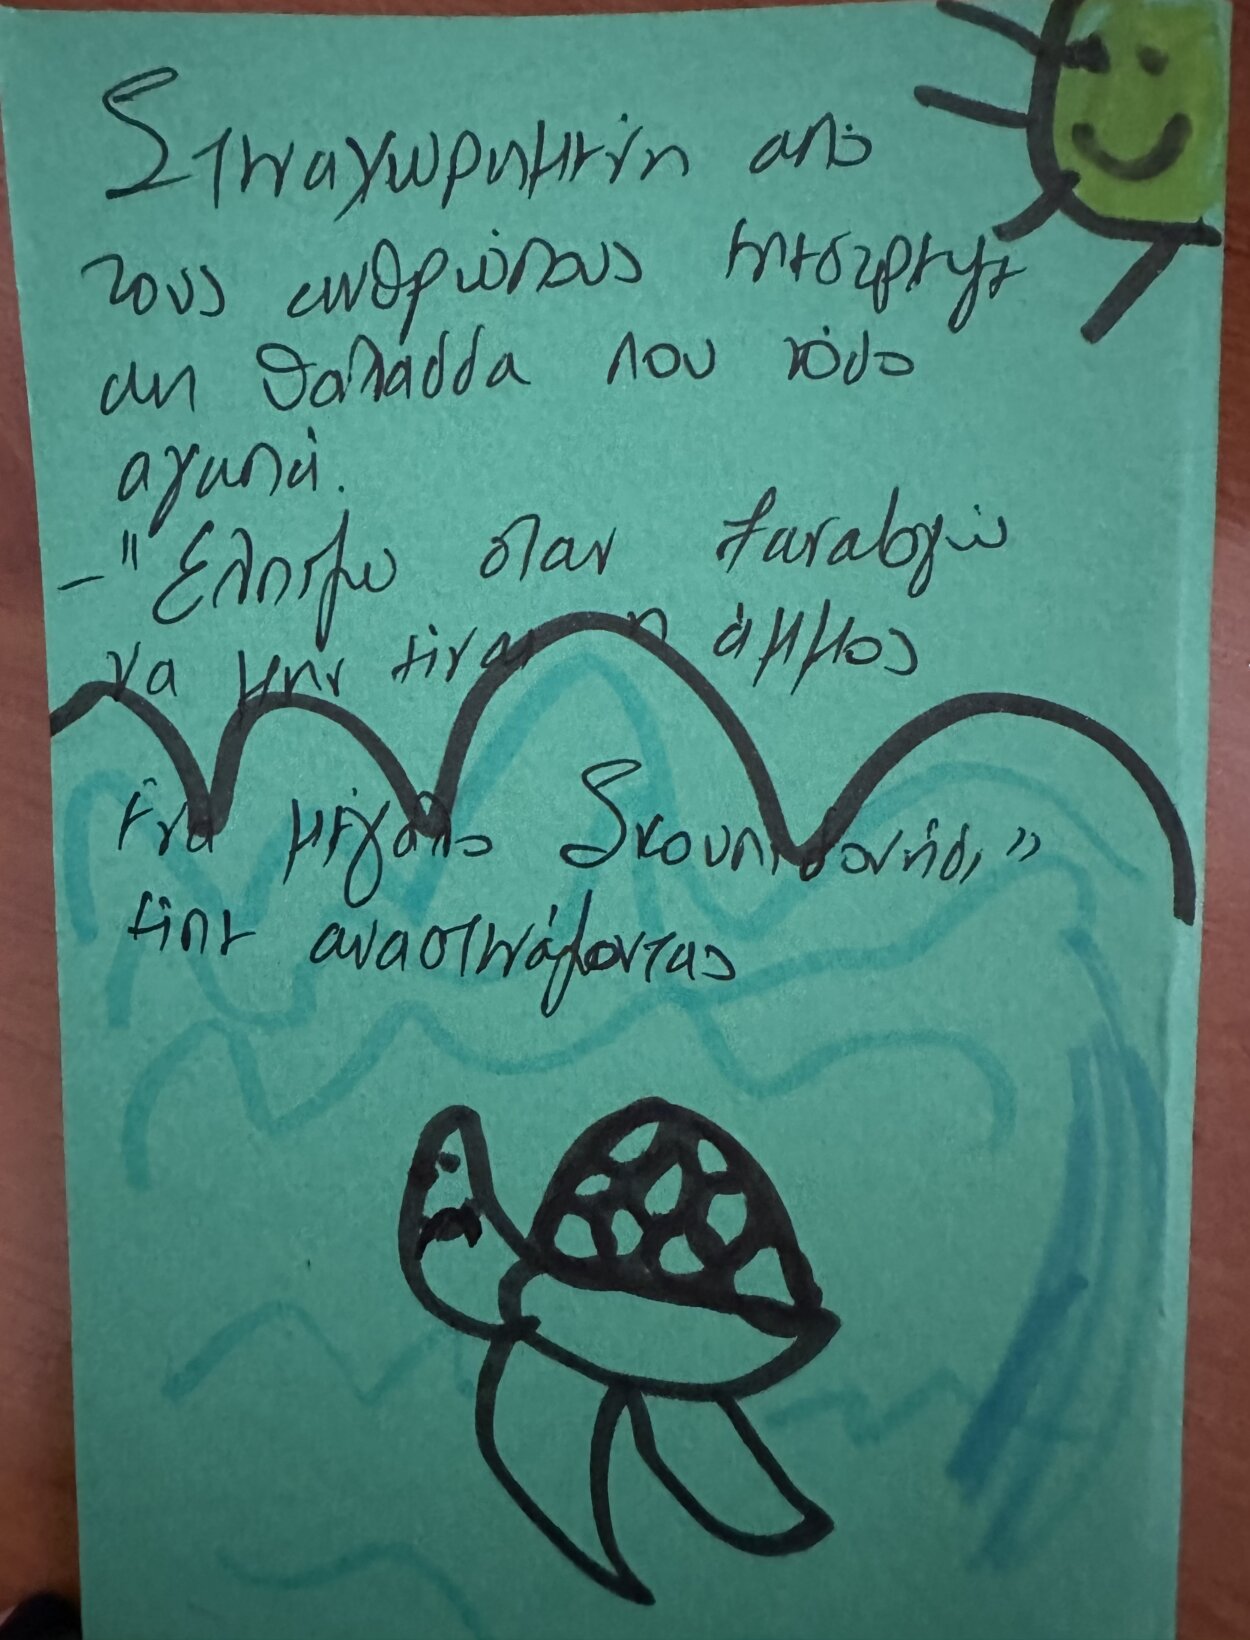 Στεναχωρημένη από
τους ανθρώπους επέστρεψε
στη θάλασσα που τόσο
αγαπά.
– "Ελπίζω όταν ξαναβγώ
να μην είναι η άμμος
ένα μεγάλο Σκουπιδονήσι"
είπε αναστενάζοντας